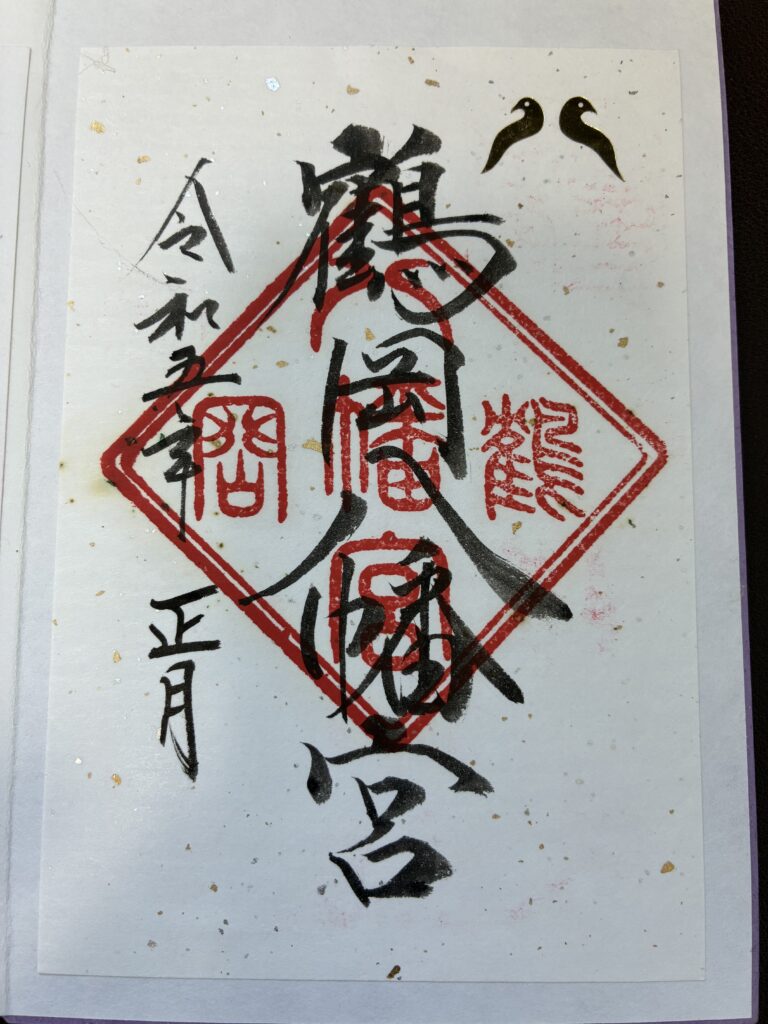 鶴岡八幡宮
令和五年 正月
鶴
八幡宮
岡